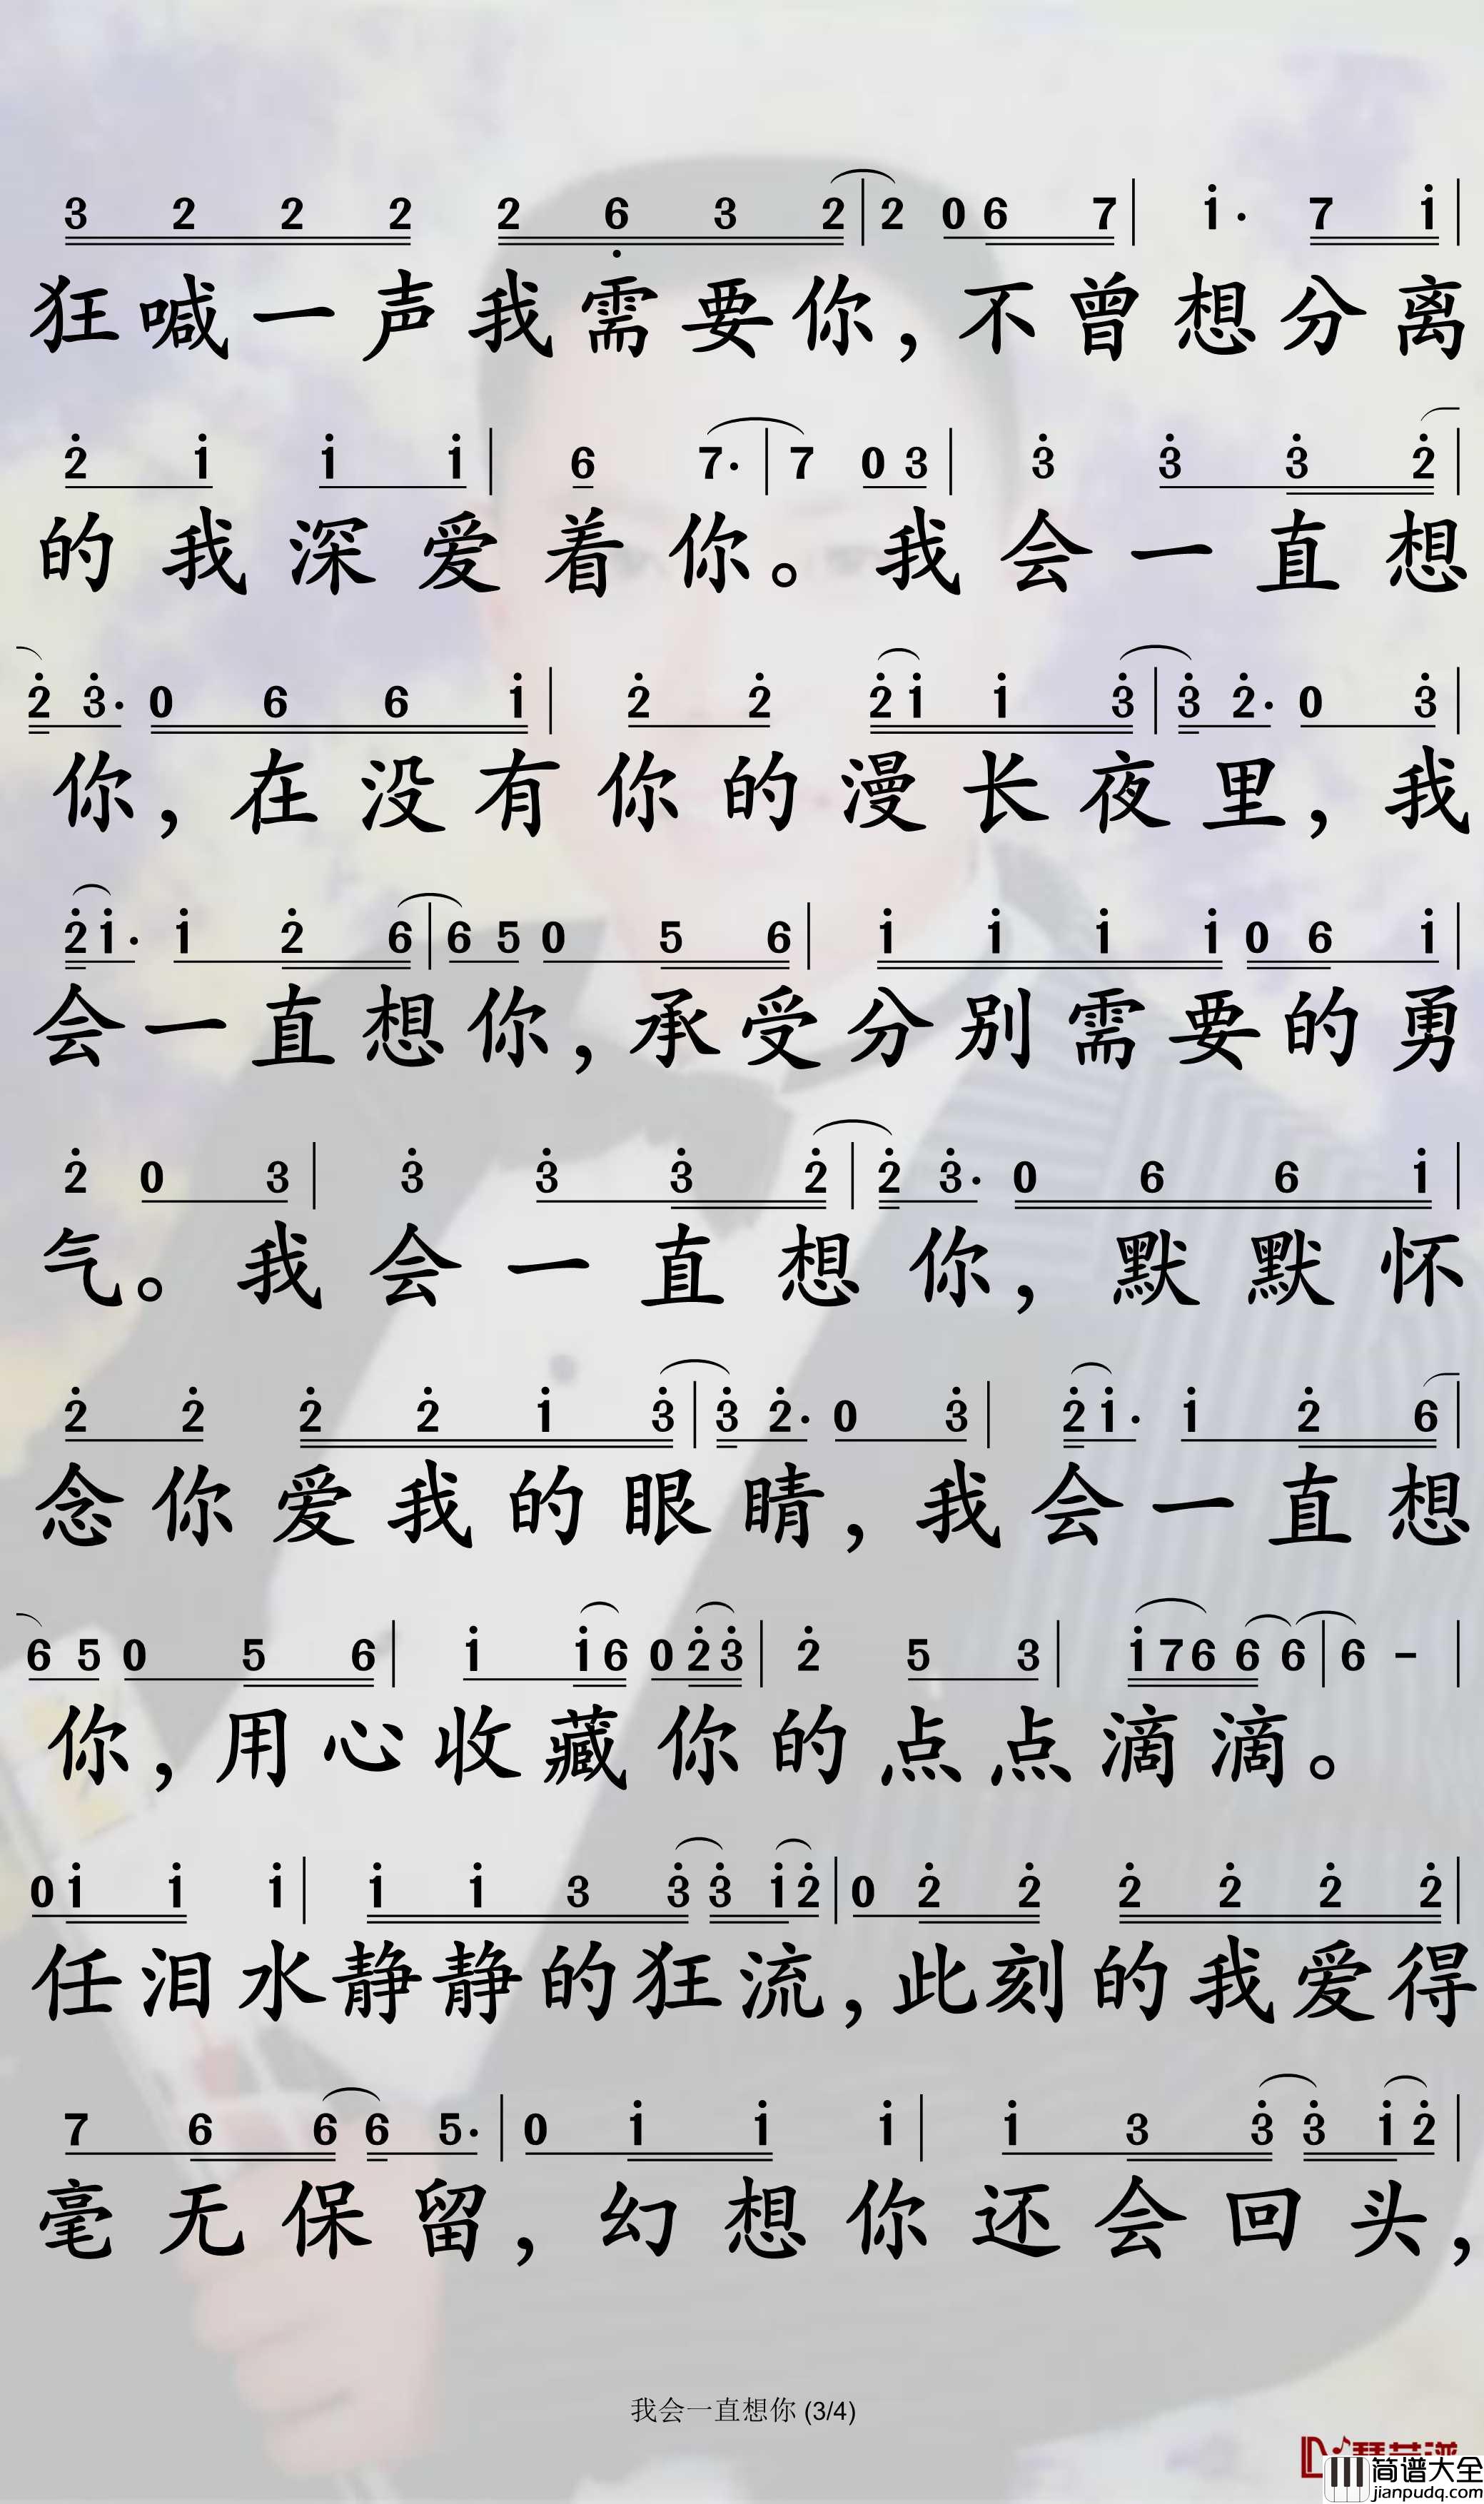 3 2 2 2 2 6 3 2 | 2 0 6 7 | 1· 7 1 |
狂喊一声我需要你，不曾想分离
2 1 1 1 | 6 7· | 7 0 3 | 3 3 3 2 |
的我深爱着你。我会一直想
2 3· 0 6 6 1 | 2 2 2 1 1 3 | 3 2· 0 3 |
你，在没有你的漫长夜里，我
2 1· 1 2 6 | 6 5 0 5 6 | 1 1 1 1 0 6 1 |
会一直想你，承受分别需要的勇
2 0 3 | 3 3 3 2 | 2 3· 0 6 6 1 |
气。我会一直想你，默默怀
2 2 2 2 1 3 | 3 2· 0 3 | 2 1· 1 2 6 |
念你爱我的眼睛，我会一直想
6 5 0 5 6 | 1 1 6 0 2 3 | 2 5 3 | 1 7 6 6 6 | 6 - |
你，用心收藏你的点点滴滴。
0 1 1 1 | 1 1 3 3 3 1 2 | 0 2 2 2 2 2 2 |
任泪水静静的狂流，此刻的我爱得
7 6 6 6 5· | 0 1 1 1 | 1 3 3 3 1 2 |
毫无保留，幻想你还会回头，
我会一直想你 (3/4)
简谱大全
jianpudq.com